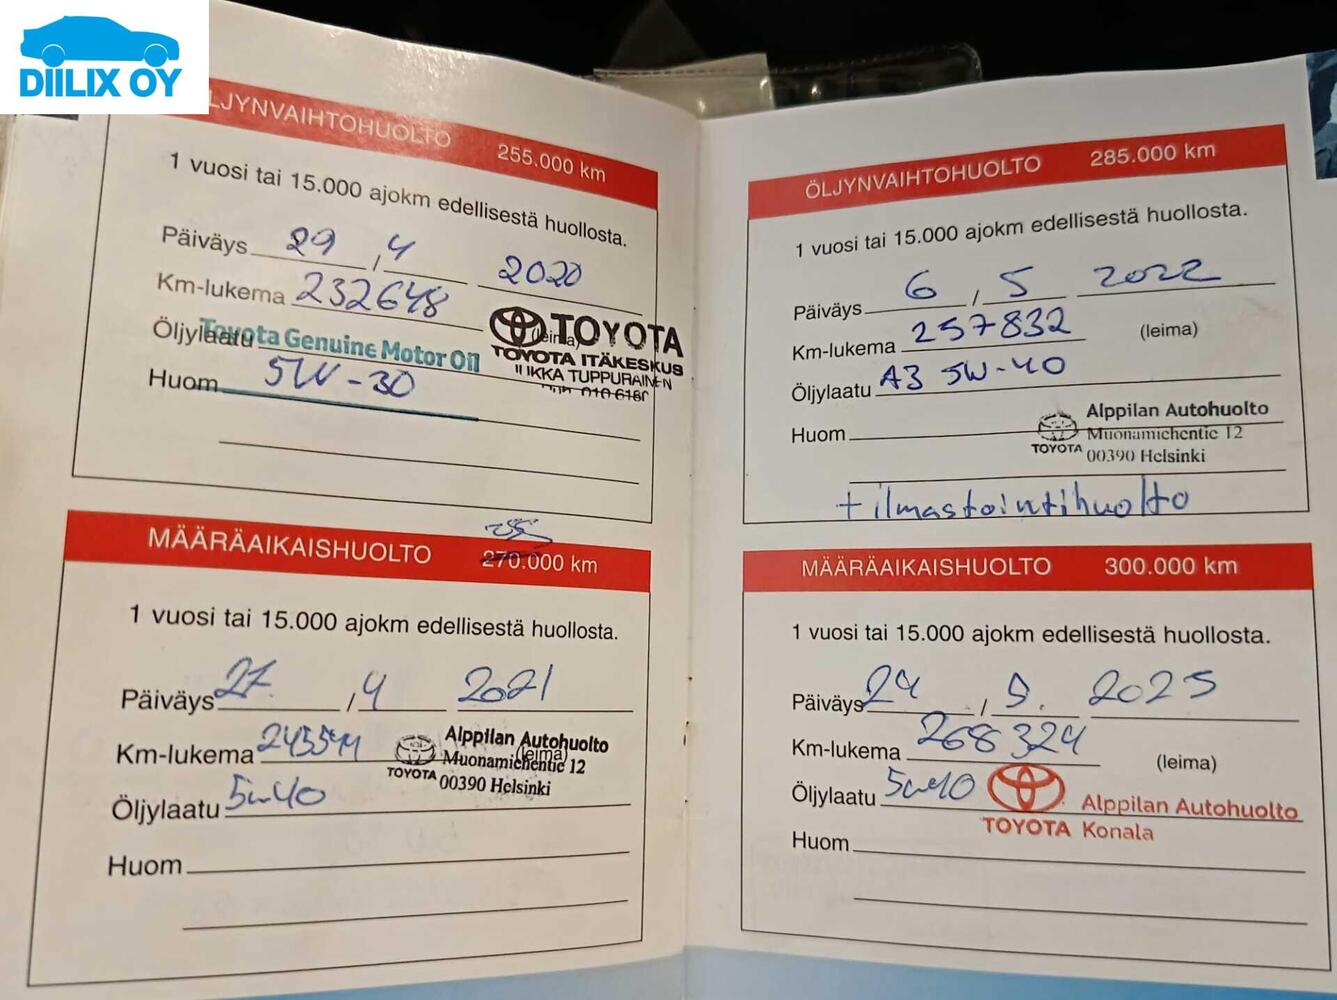 DIILIX OY
ÖLJYNVAIHTOHUOLTO 255.000 km
1 vuosi tai 15.000 ajokm edellisestä huollosta.
Päiväys 29 / 4 2020
Km-lukema 232648
Öljylaatu Toyota Genuine Motor Oil
(leima)
TOYOTA
TOYOTA ITÄKESKUS
ILKKA TUPPURAINEN
Huom. 5W-30
MÄÄRÄAIKAISHUOLTO 270.000 km
1 vuosi tai 15.000 ajokm edellisestä huollosta.
Päiväys 27. / 4 2021
Km-lukema
(leima)
Öljylaatu 5w40
TOYOTA
Alppilan Autohuolto
Muonamiehentie 12
00390 Helsinki
Huom
ÖLJYNVAIHTOHUOLTO 285.000 km
1 vuosi tai 15.000 ajokm edellisestä huollosta.
Päiväys 6 / 5 2022
Km-lukema 257832 (leima)
Öljylaatu A3 5W-40
Huom
TOYOTA
Alppilan Autohuolto
Muonamiehentie 12
00390 Helsinki
+ ilmastointihuolto
MÄÄRÄAIKAISHUOLTO 300.000 km
1 vuosi tai 15.000 ajokm edellisestä huollosta.
Päiväys 24 / 2025
Km-lukema 268324 (leima)
Öljylaatu 5w40
TOYOTA
Alppilan Autohuolto
Konala
Huom